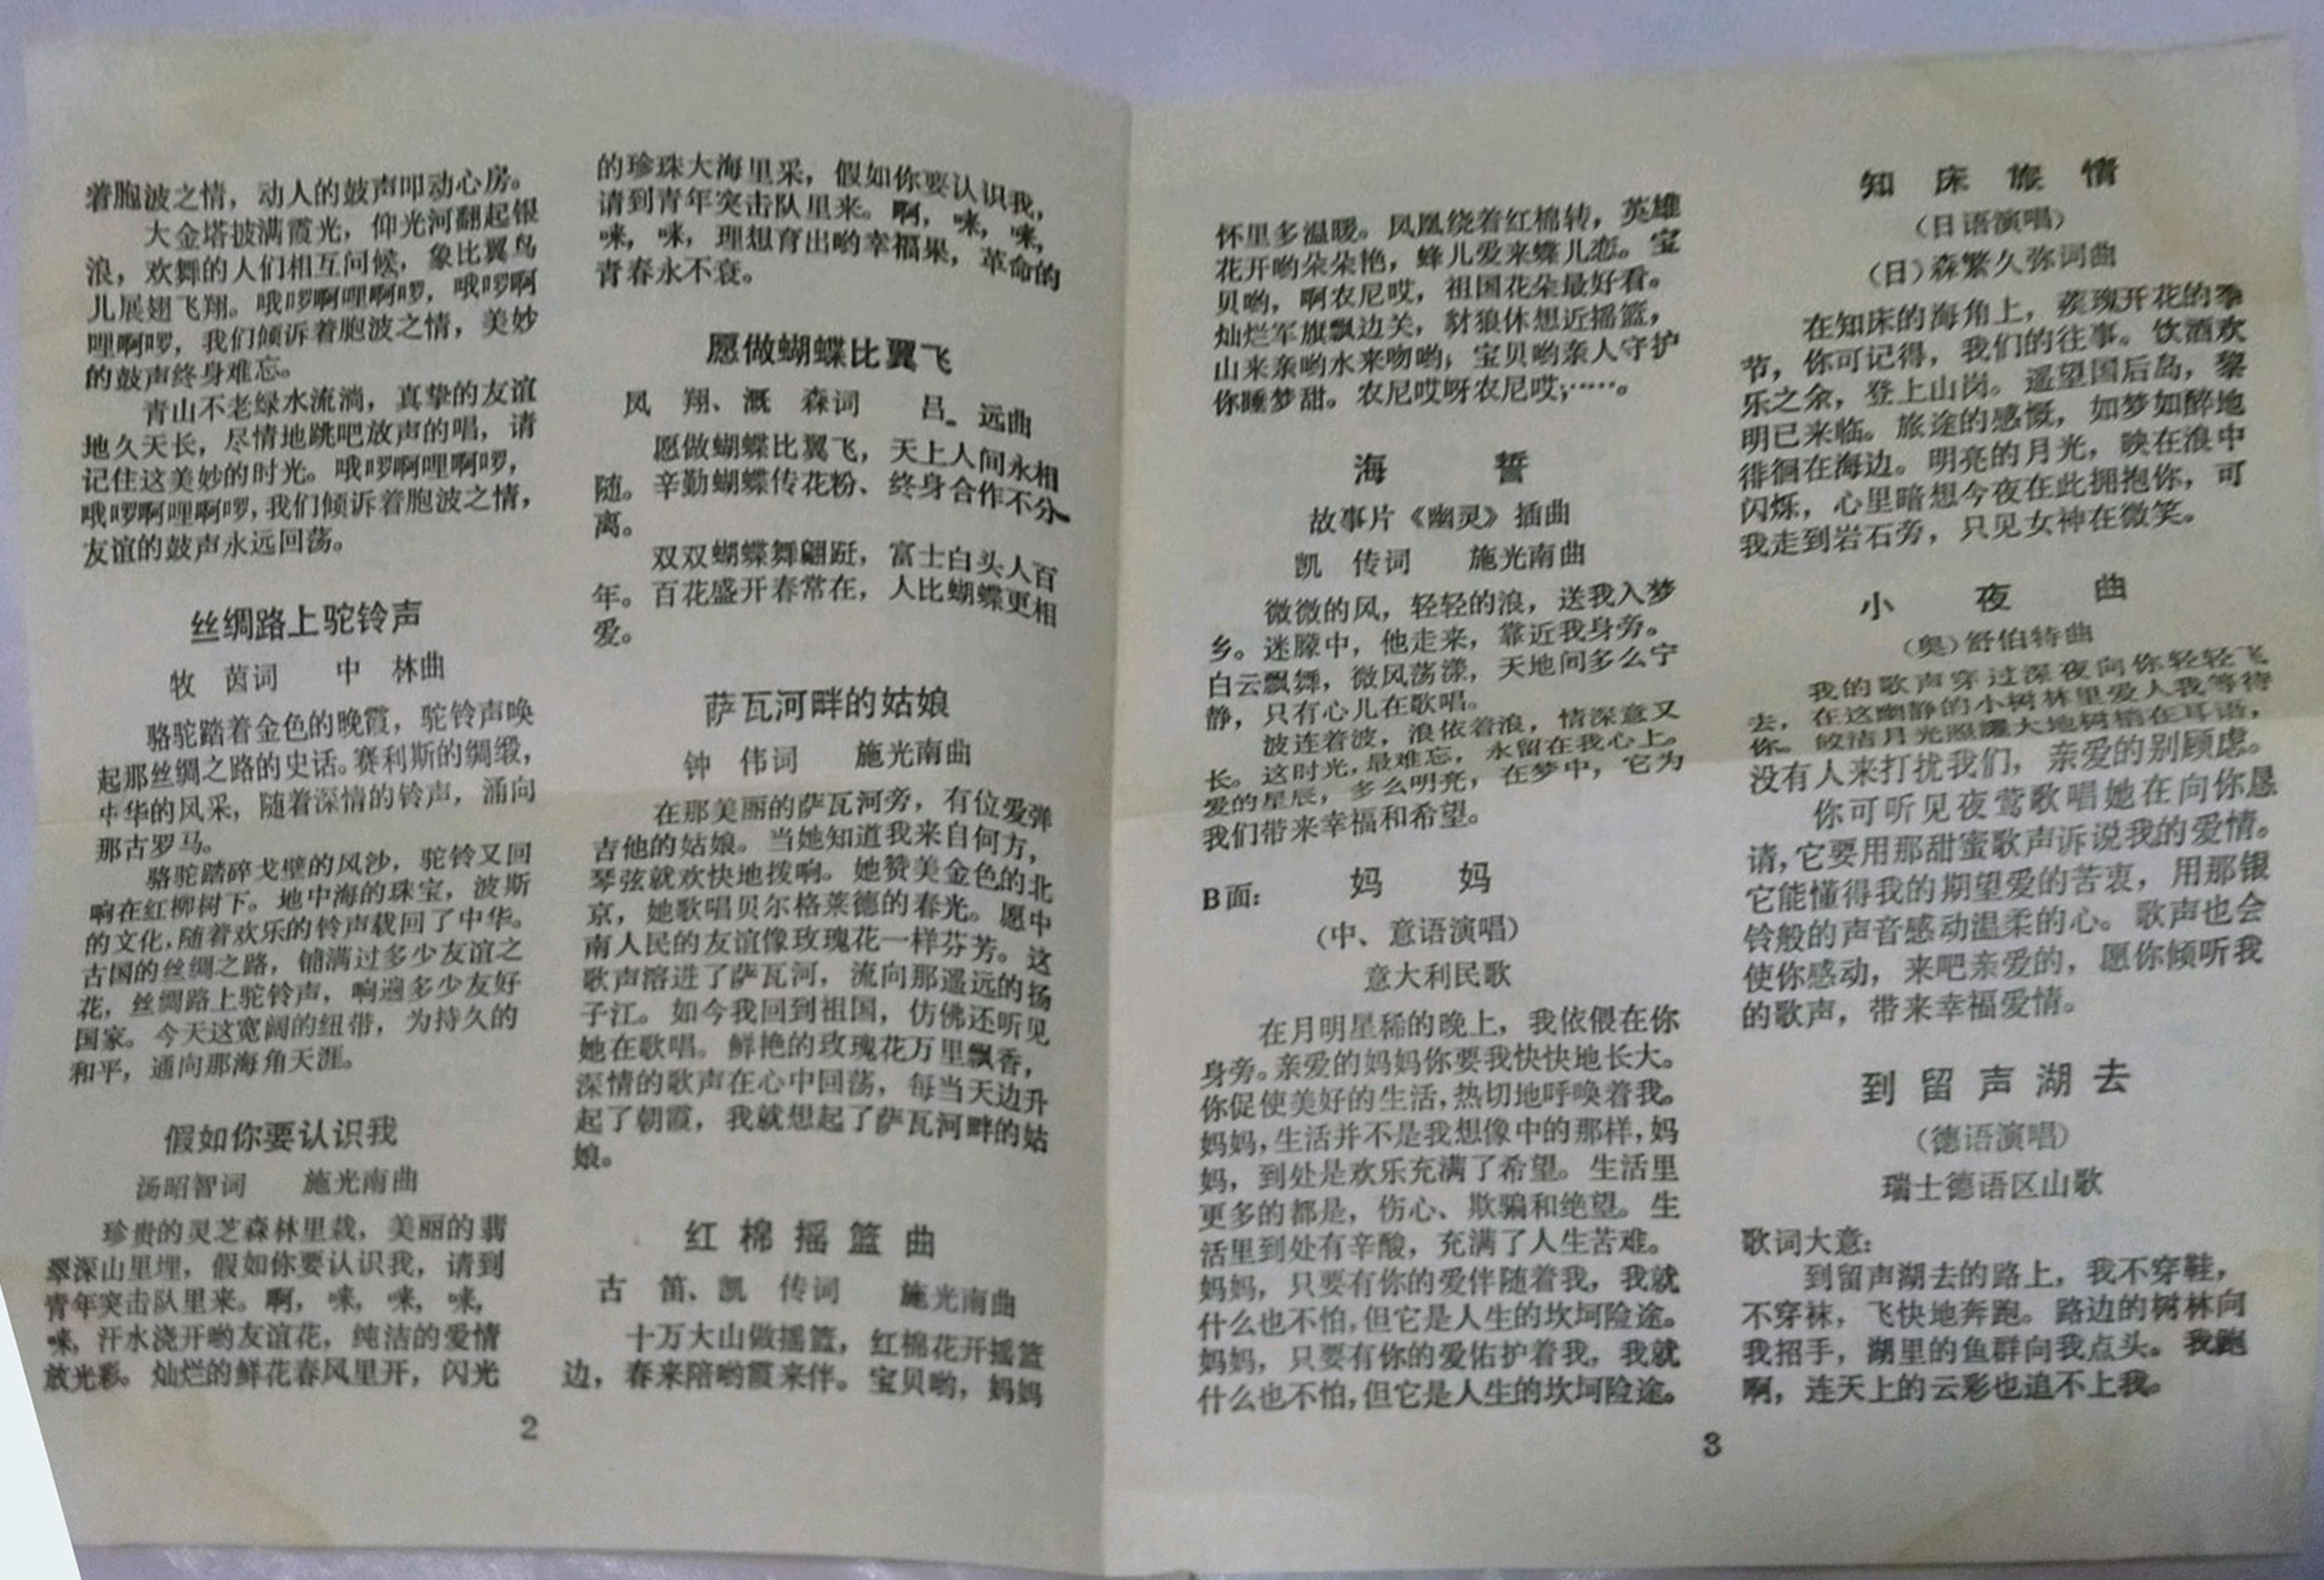 着胞波之情，动人的鼓声叩动心房。
大金塔披满霞光，仰光河翻起银
浪，欢舞的人们相互问候，象比翼鸟
儿展翅飞翔。哦啰啊哩啊啰，哦啰啊
哩啊啰，我们倾诉着胞波之情，美妙
的鼓声终身难忘。
青山不老绿水流淌，真挚的友谊
地久天长，尽情地跳吧放声的唱，请
记住这美妙的时光。哦啰啊哩啊啰，
哦啰啊哩啊啰，我们倾诉着胞波之情，
友谊的鼓声永远回荡。
丝绸路上驼铃声
牧 茵词 中 林曲
骆驼踏着金色的晚霞，驼铃声唤
起那丝绸之路的史话。赛利斯的绸缎，
中华的风采，随着深情的铃声，涌向
那古罗马。
骆驼踏碎戈壁的风沙，驼铃又回
响在红柳树下。地中海的珠宝，波斯
的文化，随着欢乐的铃声载回了中华。
古国的丝绸之路，铺满过多少友谊之
花，丝绸路上驼铃声，响遍多少友好
国家。今天这宽阔的纽带，为持久的
和平，通向那海角天涯。
假如你要认识我
汤昭智词 施光南曲
珍贵的灵芝森林里栽，美丽的翡
翠深山里埋，假如你要认识我，请到
青年突击队里来。啊，咪，咪，咪，
咪，汗水浇开哟友谊花，纯洁的爱情
放光彩。灿烂的鲜花春风里开，闪光
2
的珍珠大海里采，假如你要认识我，
请到青年突击队里来。啊，咪，咪，
咪，咪，理想育出哟幸福果，革命的
青春永不衰。
愿做蝴蝶比翼飞
凤 翔、溉 森词 吕 远曲
愿做蝴蝶比翼飞，天上人间永相
随。辛勤蝴蝶传花粉、终身合作不分
离。
双双蝴蝶舞翩跹，富士白头人百
年。百花盛开春常在，人比蝴蝶更相
爱。
萨瓦河畔的姑娘
钟 伟词 施光南曲
在那美丽的萨瓦河旁，有位爱弹
吉他的姑娘。当她知道我来自何方，
琴弦就欢快地拨响。她赞美金色的北
京，她歌唱贝尔格莱德的春光。愿中
南人民的友谊像玫瑰花一样芬芳。这
歌声溶进了萨瓦河，流向那遥远的扬
子江。如今我回到祖国，仿佛还听见
她在歌唱。鲜艳的玫瑰花万里飘香，
深情的歌声在心中回荡，每当天边升
起了朝霞，我就想起了萨瓦河畔的姑
娘。
红棉摇篮曲
古 笛、凯 传词 施光南曲
十万大山做摇篮，红棉花开摇篮
边，春来陪哟霞来伴。宝贝哟，妈妈
怀里多温暖。凤凰绕着红棉转，英雄
花开哟朵朵艳，蜂儿爱来蝶儿恋。宝
贝哟，啊农尼哎，祖国花朵最好看。
灿烂军旗飘边关，豺狼休想近摇篮，
山来亲哟水来吻哟；宝贝哟亲人守护
你睡梦甜。农尼哎呀农尼哎；……。
海 誓
故事片《幽灵》插曲
凯 传词 施光南曲
微微的风，轻轻的浪，送我入梦
乡。迷朦中，他走来，靠近我身旁。
白云飘舞，微风荡漾，天地间多么宁
静，只有心儿在歌唱。
波连着波，浪依着浪，情深意又
长。这时光，最难忘，永留在我心上。
爱的星辰，多么明亮，在梦中，它为
我们带来幸福和希望。
B面： 妈 妈
（中、意语演唱）
意大利民歌
在月明星稀的晚上，我依偎在你
身旁。亲爱的妈妈你要我快快地长大。
你促使美好的生活，热切地呼唤着我。
妈妈，生活并不是我想像中的那样，妈
妈，到处是欢乐充满了希望。生活里
更多的都是，伤心、欺骗和绝望。生
活里到处有辛酸，充满了人生苦难。
妈妈，只要有你的爱伴随着我，我就
什么也不怕，但它是人生的坎坷险途。
妈妈，只要有你的爱佑护着我，我就
什么也不怕，但它是人生的坎坷险途。
3
知床旅情
（日语演唱）
（日）森繁久弥词曲
在知床的海角上，蔟瑰开花的季
节，你可记得，我们的往事。饮酒欢
乐之余，登上山岗。遥望国后岛，黎
明已来临。旅途的感慨，如梦如醉地
徘徊在海边。明亮的月光，映在浪中
闪烁，心里暗想今夜在此拥抱你，可
我走到岩石旁，只见女神在微笑。
小 夜 曲
（奥）舒伯特曲
我的歌声穿过深夜向你轻轻飞
去，在这幽静的小树林里爱人我等待
你。皎洁月光照耀大地树梢在耳语，
没有人来打扰我们，亲爱的别顾虑。
你可听见夜莺歌唱她在向你恳
请，它要用那甜蜜歌声诉说我的爱情。
它能懂得我的期望爱的苦衷，用那银
铃般的声音感动温柔的心。歌声也会
使你感动，来吧亲爱的，愿你倾听我
的歌声，带来幸福爱情。
到留声湖去
（德语演唱）
瑞士德语区山歌
歌词大意：
到留声湖去的路上，我不穿鞋，
不穿袜，飞快地奔跑。路边的树林向
我招手，湖里的鱼群向我点头。我跑
啊，连天上的云彩也追不上我。